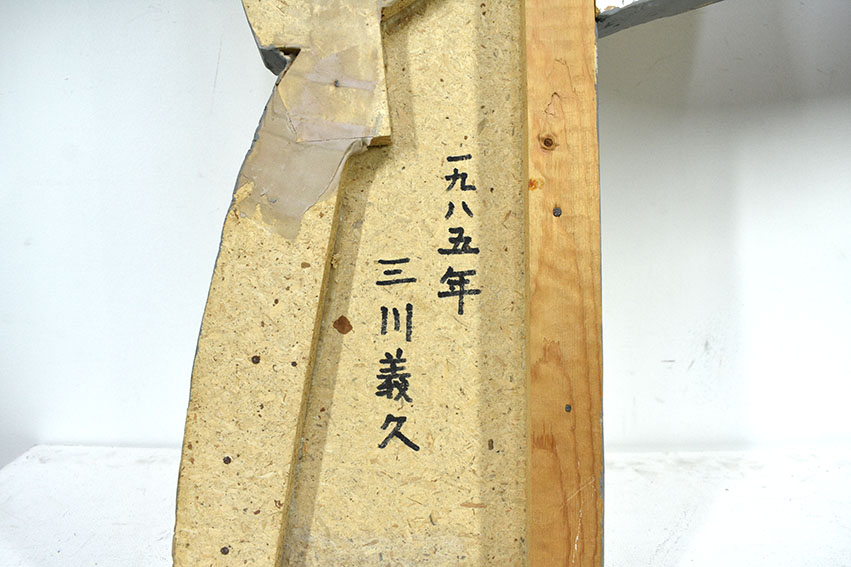 一九八五年
三川義久